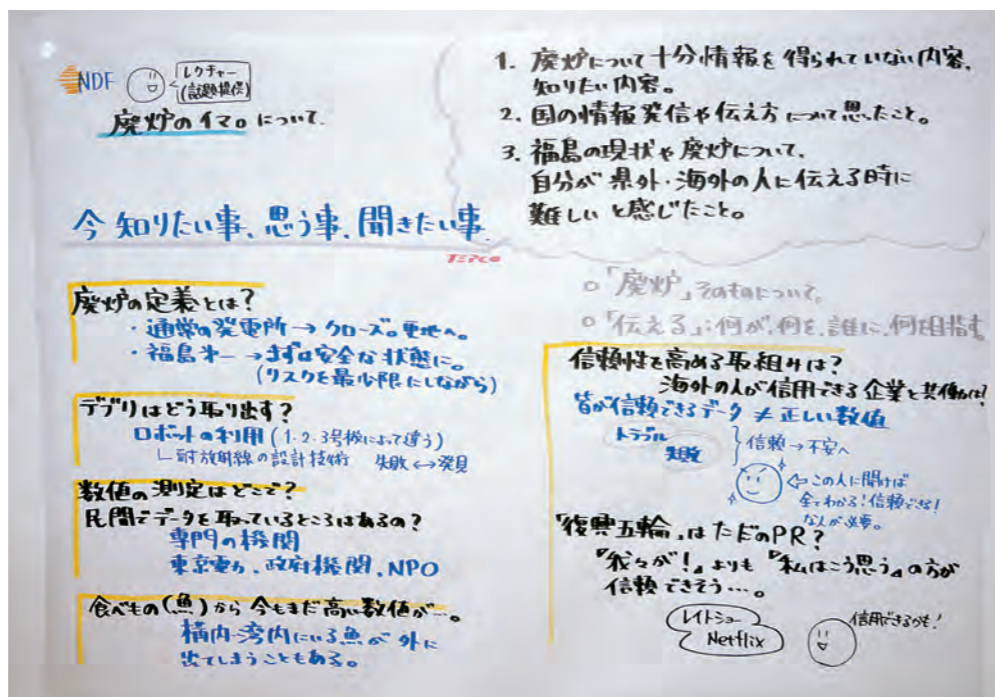 NDF
レクチャー
(話題提供)
廃炉のイマ。について.
1. 廃炉について十分情報を得られていない内容、
知りたい内容。
2. 国の情報発信や伝え方について思ったこと。
3. 福島の現状や廃炉について、
自分が県外・海外の人に伝える時に
難しいと感じたこと。
今知りたい事、思う事、聞きたい事.
TEPCO
廃炉の定義とは?
・通常の発電所→クローズ。更地へ。
・福島第一→まずは安全な状態に。
(リスクを最小限にしながら)
デブリはどう取り出す?
ロボットの利用(1・2・3号機によって違う)
耐放射線の設計技術 失敗↔発見
数値の測定はどこで?
民間でデータを取っているところはあるの?
専門の機関
東京電力、政府機関、NPO
食べもの(魚)から今もまだ高い数値が…。
構内-湾内にいる魚が外に
出てしまうこともある。
○「廃炉」そのものについて。
○「伝える」:何が、何を、誰に、何を目指す
信頼性を高める取組みは?
海外の人が信用できる企業と共働は?
皆が信頼できるデータ≠正しい数値
トラブル
失敗
信頼→不安へ
⇦この人に聞けば
全てわかる!信頼できる!
な人が必要。
「復興五輪」はただのPR?
『我々が!』よりも『私はこう思う』の方が
信頼できそう…。
レイトショー
Netflix
信用できるかも!